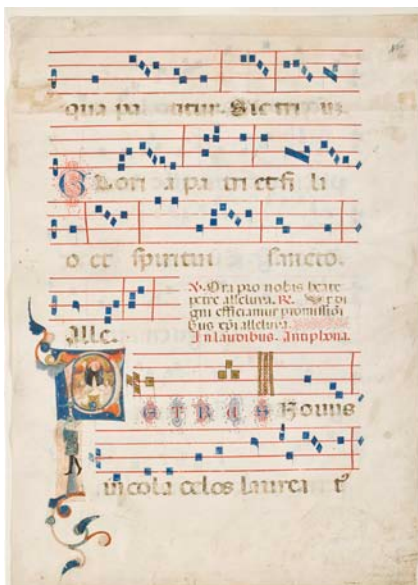 qua pa titur. Sic tri
Glori a pa tri et fi li
o et spiritui sancto.
alle.
V. Ora pro nobis beate
petre alleluya. R. Ut di
gni efficiamur promissioni
bus xpi alleluya.
In laudibus. Antiphona.
PETRUS Novus
incola celos laurea